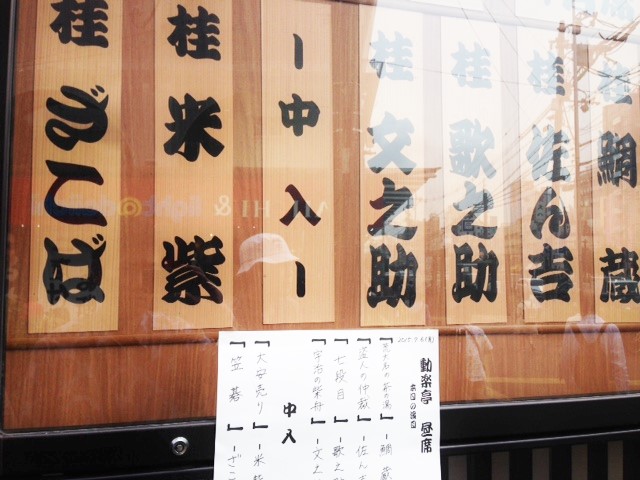 桂 鯛蔵
桂 佐ん吉
桂 歌之助
桂 文之助
ー中入ー
桂 米紫
桂 ざこば
動楽亭 昼席
本日の演目
『荒大名の茶の湯』ー鯛蔵
『盗人の仲裁』ー佐ん吉
『七段目』ー歌之
『宇治の柴舟』ー文之
中入
『大安売り』ー米紫
『笠碁』ーざこ